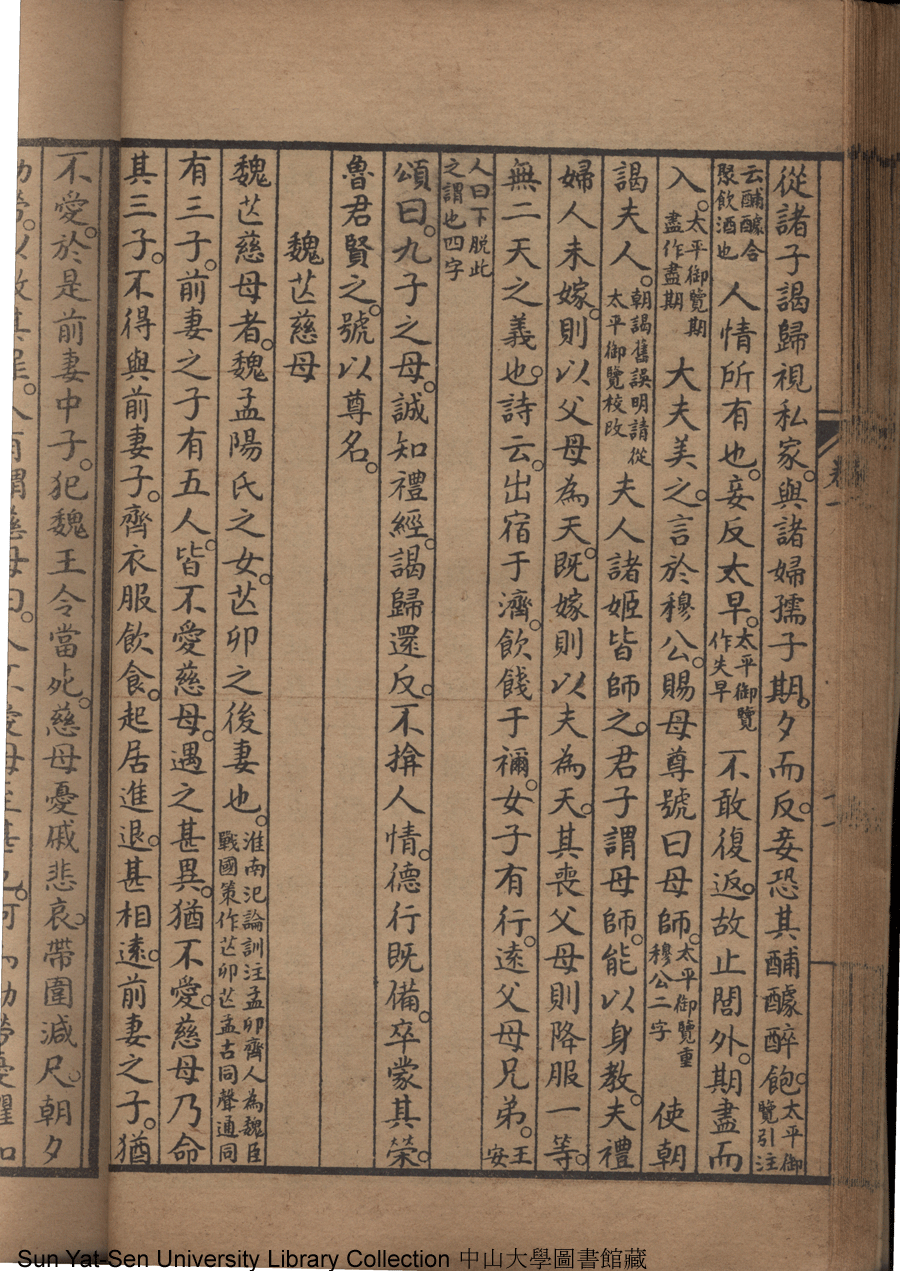 從諸子謁歸視私家。與諸婦孺子期。夕而反。妾恐其酺醵醉飽。太平御覽引注
云酺醵合聚飲酒也人情所有也。妾反太早。太平御覽作失早不敢復返。故止閭外。期盡而
入。太平御覽期盡作盡期大夫美之。言於穆公。賜母尊號曰母師。太平御覽重穆公二字使朝
謁夫人。朝謁舊誤明請從太平御覽校改夫人諸姬皆師之。君子謂母師。能以身教。夫禮
婦人未嫁。則以父母為天。既嫁則以夫為天。其喪父母則降服一等。
無二天之義也。詩云。出宿于濟。飲餞于禰。女子有行。遠父母兄弟。王安
人曰下脫此之謂也四字
頌曰。九子之母。誠知禮經。謁歸還反。不揜人情。德行既備。卒蒙其榮。
魯君賢之。號以尊名。
魏芒慈母
魏芒慈母者。魏孟陽氏之女。芒卯之後妻也。淮南氾論訓注孟卯齊人為魏臣戰國策作芒卯芒孟古同聲通同
有三子。前妻之子有五人。皆不愛慈母。遇之甚異。猶不愛。慈母乃命
其三子。不得與前妻子。齊衣服飲食。起居進退。甚相遠。前妻之子。猶
不愛。於是前妻中子。犯魏王令當死。慈母憂戚悲哀。帶圍減尺。朝夕
卷一
Sun Yat-Sen University Library Collection 中山大學圖書館藏